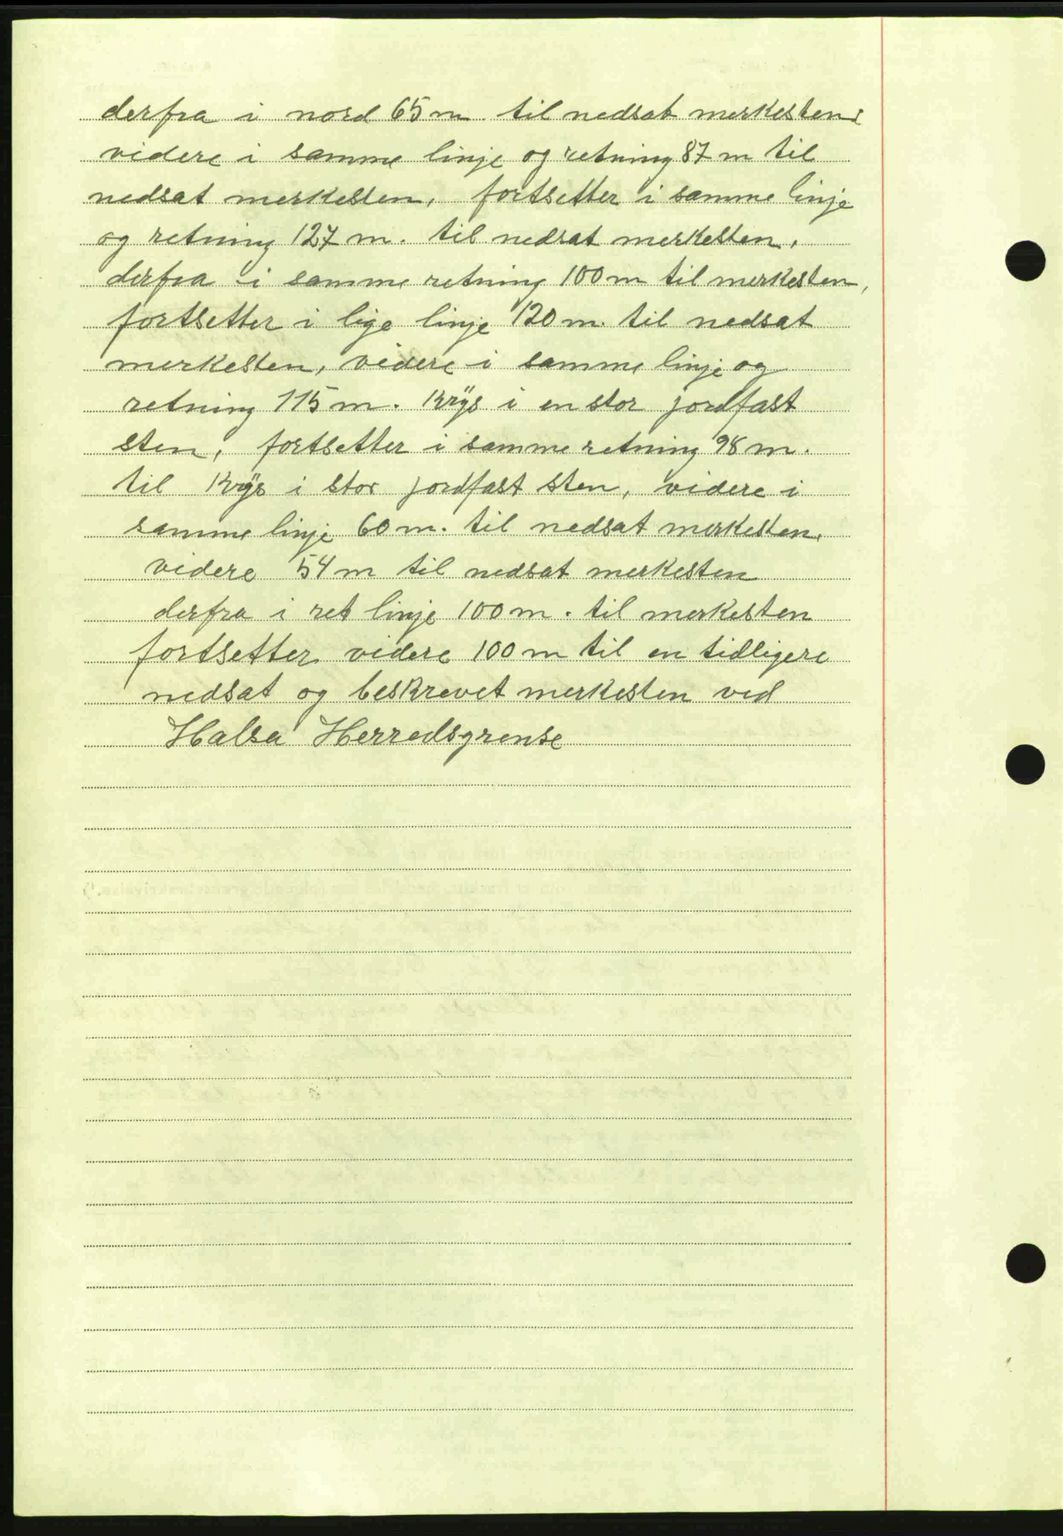 derfra i nord 65 m. til nedsat merkesten,
videre i samme linje og retning 87 m til
nedsat merkesten, fortsetter i samme linje
og retning 127 m. til nedsat merkesten,
derfra i samme retning 100 m til merkesten,
fortsetter i lige linje 120 m til nedsat
merkesten, videre i samme linje og
retning 115 m. Krys i en stor jordfast
sten, fortsetter i samme retning 98 m.
til Krys i stor jordfast sten, videre i
samme linje 60 m. til nedsat merkesten,
videre 54 m til nedsat merkesten
derfra i ret linje 100 m. til merkesten
fortsetter videre 100 m til en tidligere
nedsat og beskrevet merkesten ved
Halsa Herredsgrense